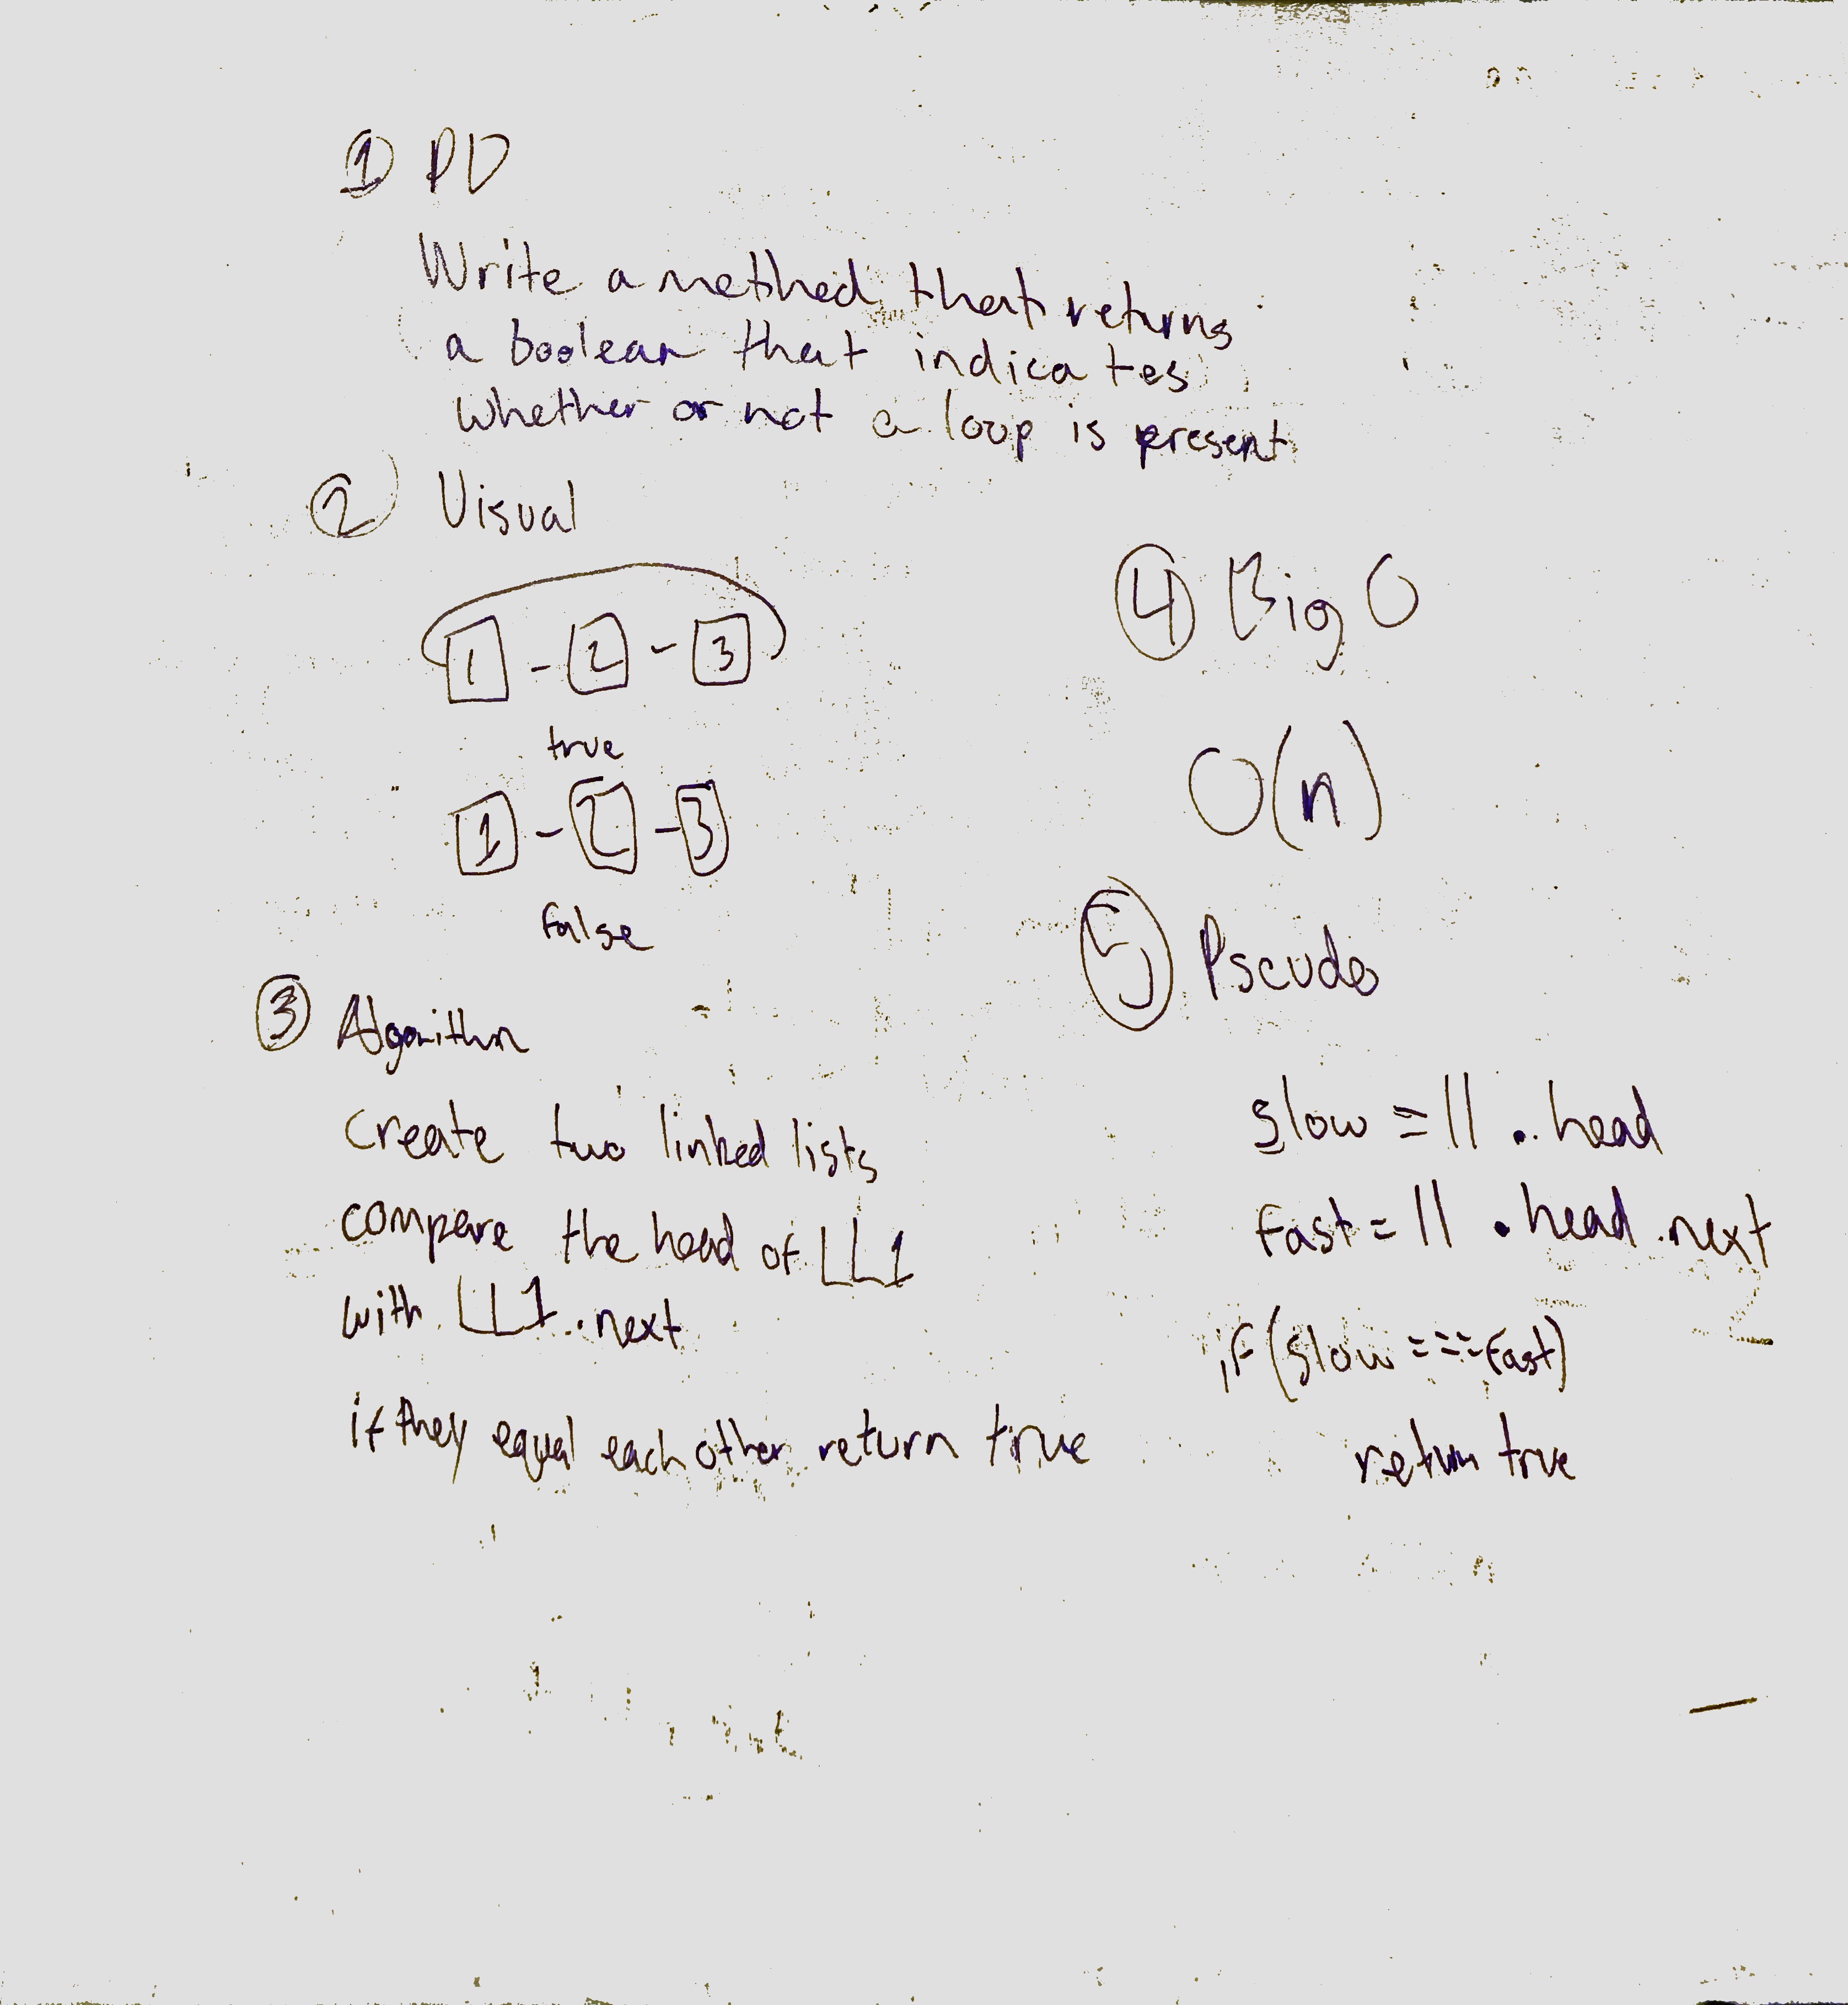 ① PD
Write a method that returns
a boolean that indicates
whether or not a loop is present
② Visual
1 - 2 - 3
true
1 - 2 - 3
false
③ Algorithm
create two linked lists
compare the head of LL1
with LL1.next
if they equal each other return true
④ Big O
O(n)
⑤ Pseudo
slow = ll .head
fast = ll .head.next
if (slow === fast)
return true